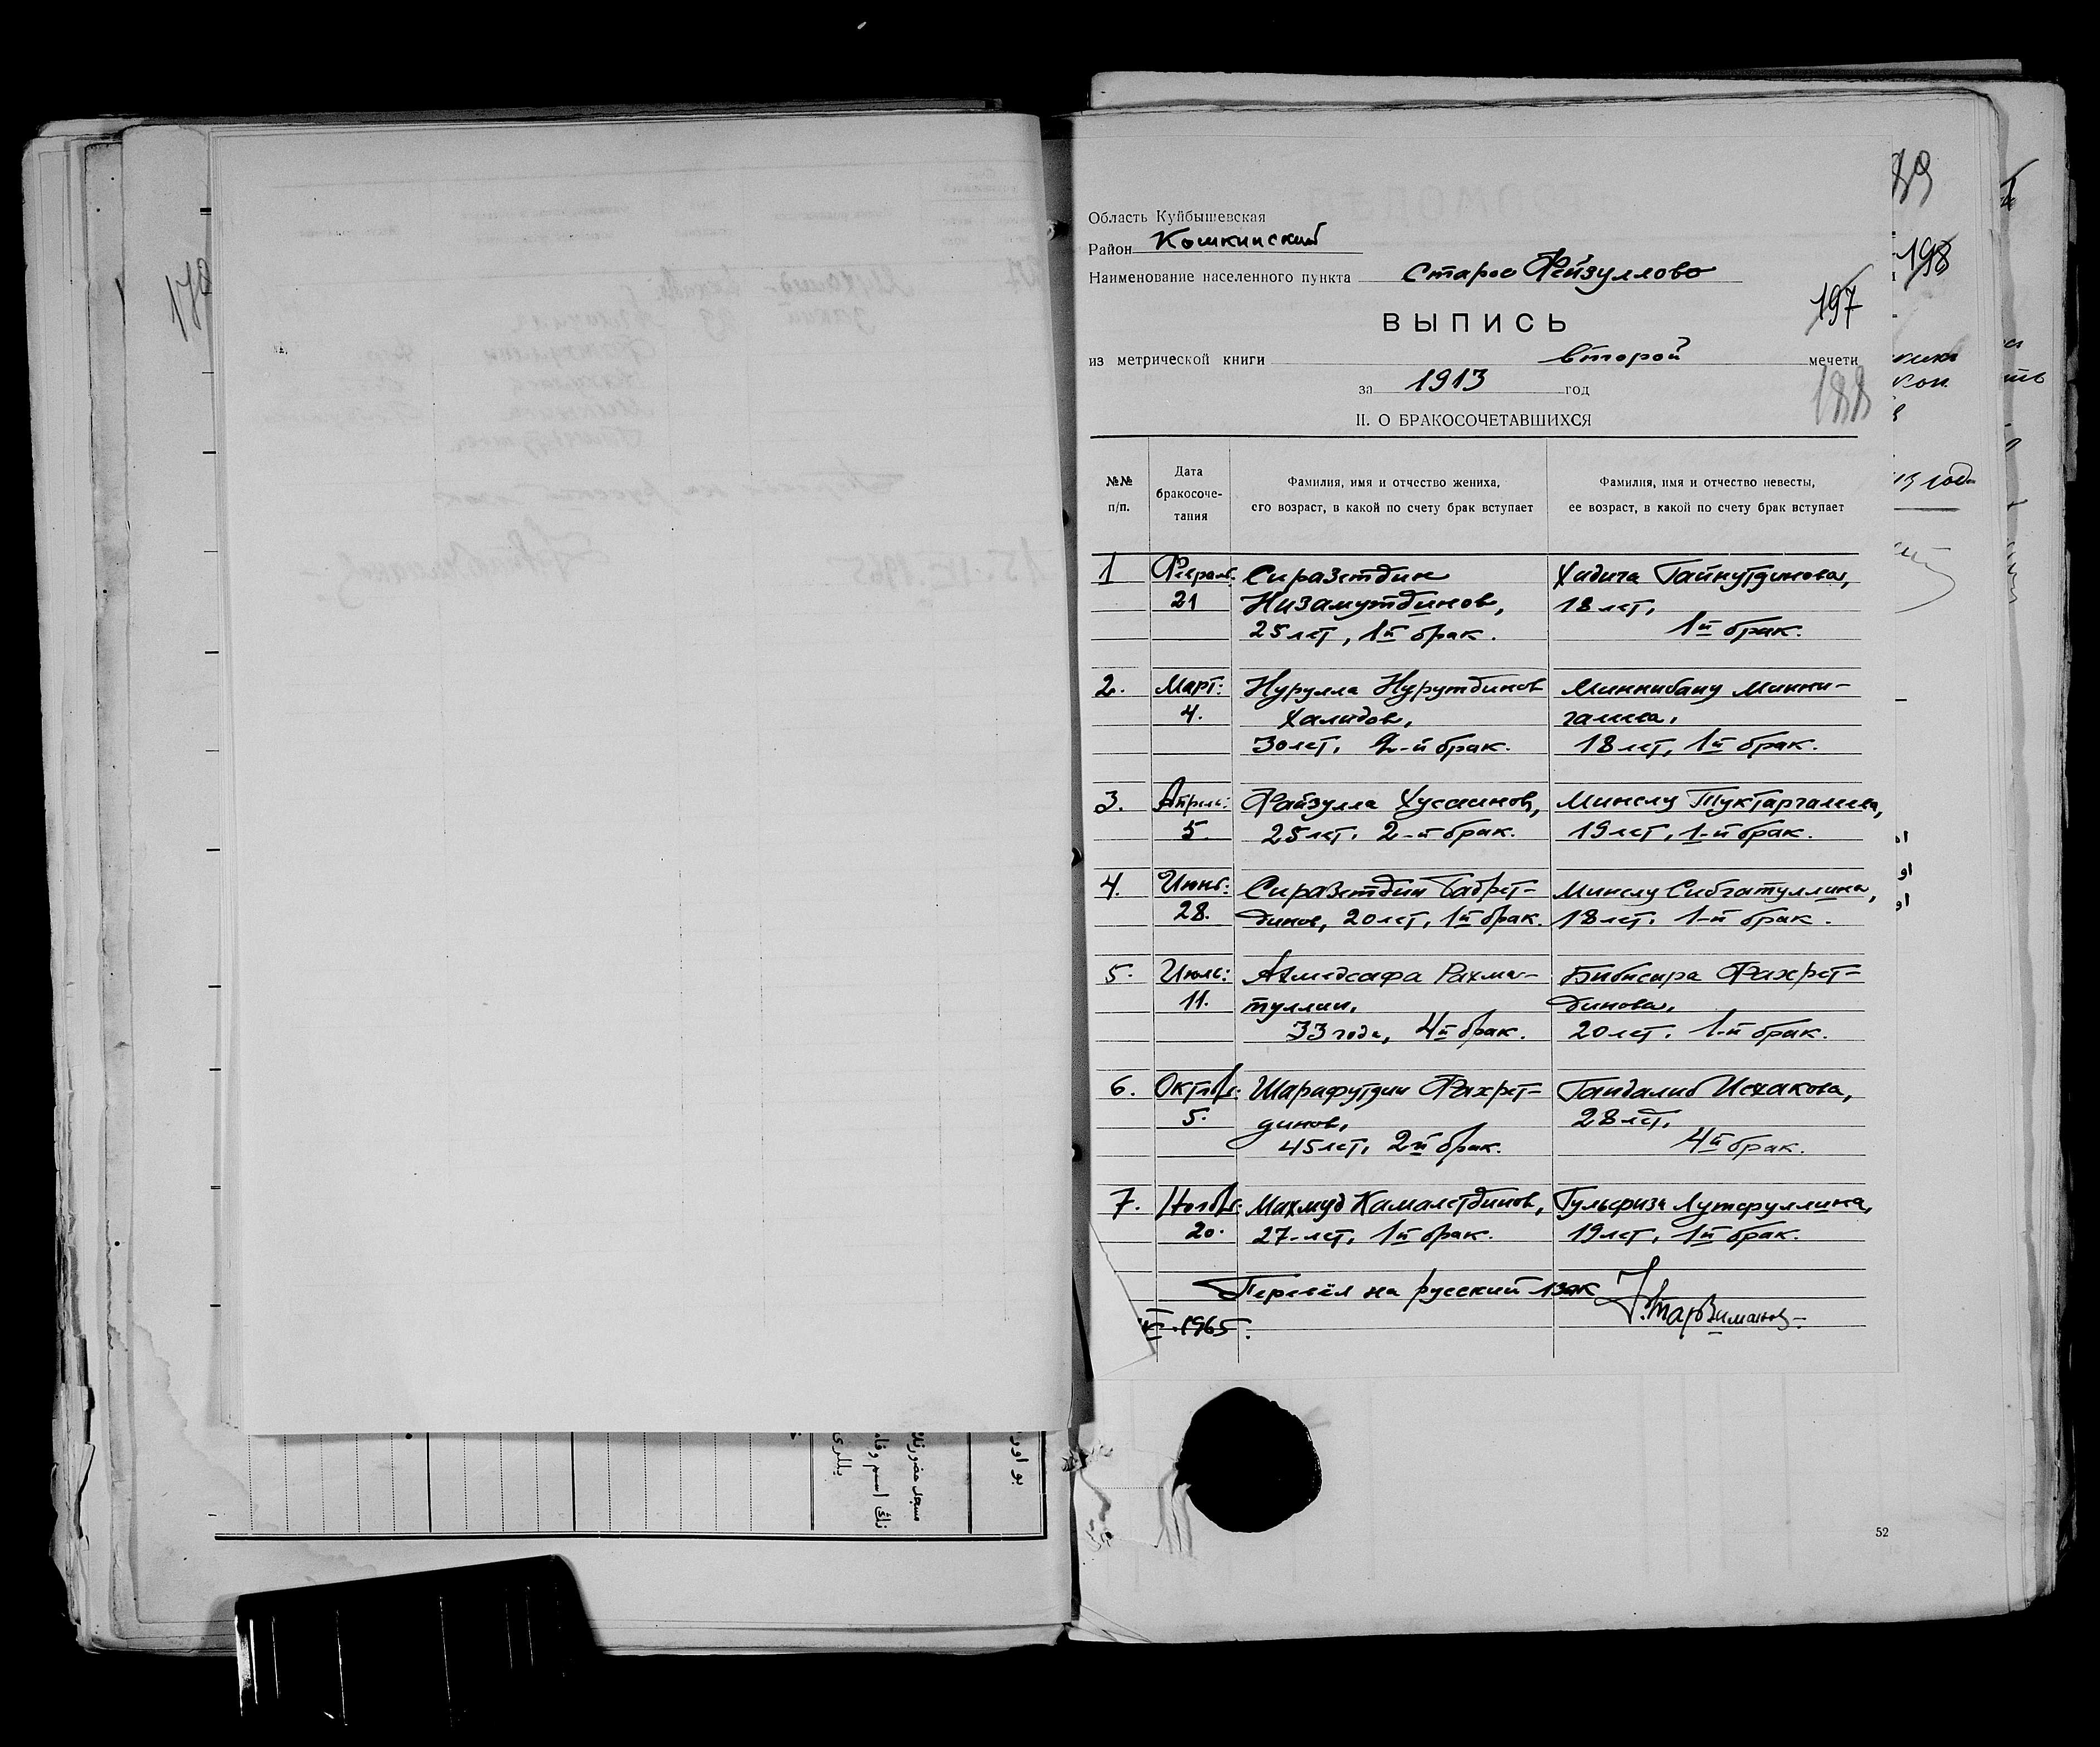 178
Область Куйбышевская
Район Кошкинский
Наименование населенного пункта Старое Фейзуллово
197
198
ВЫПИСЬ
из метрической книги второй мечети
188
за 1913 год
II. О БРАКОСОЧЕТАВШИХСЯ
№№ п/п.
Дата бракосоче-тания
Фамилия, имя и отчество жениха,
его возраст, в какой по счету брак вступает
Фамилия, имя и отчество невесты,
ее возраст, в какой по счету брак вступает
1 Февраль: Сиразетдин Хадича Гайнутдинова,
21 Низамутдинов, 18 лет,
25 лет, 1й брак. 1й брак.
2. Март: Нурулла Нурутдинов Миннибану Минни-
4. Халидов, галиева,
30 лет. 2-й брак. 18 лет, 1й брак.
3. Апрель: Файзулла Хусаинов, Минслу Туктаргалиева,
5. 25 лет. 2-й брак. 19 лет, 1-й брак.
4. Июнь: Сиразетдин Бадрет- Минслу Сибгатуллина,
28. динов, 20 лет, 1й брак. 18 лет. 1-й брак.
5. Июль: Ахмедсафа Рахма- Бибисара Фахрет-
11. туллин, динова,
33 года, 4й брак. 20 лет. 1-й брак.
6. Октябрь: Шарафутдин Фахрет- Исхакова,
5. динов, 28 лет,
45 лет, 2й брак. 4й брак.
7. Ноябрь: Махмуд Камалетдинов, Гульфиза Лутфуллина,
20. 27-лет, 1й брак. 19 лет, 1й брак.
Перевёл на русский язык
1965.
52